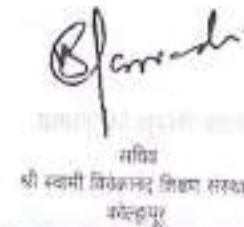 सचिव
श्री स्वामी विवेकानंद शिक्षण संस्था
कोल्हापूर